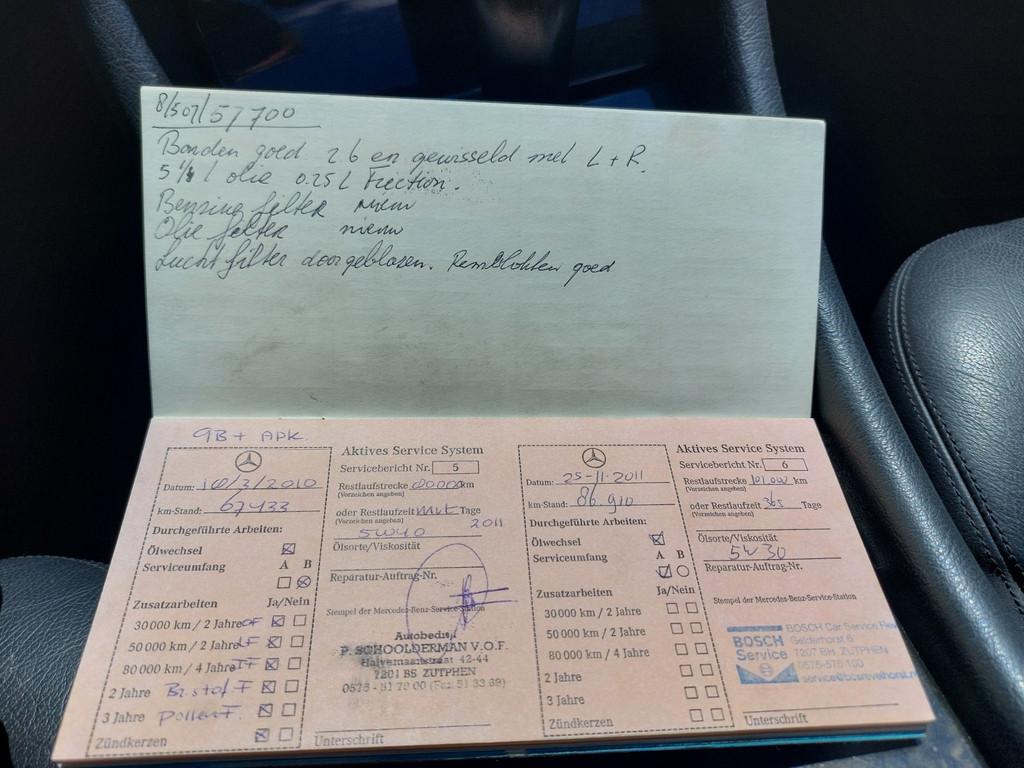 8/507/57700
Banden goed 2.6 en gewisseld met L + R.
5 ½ l olie 0.25 L Friction.
Benzine filter nieuw
Olie filter nieuw
Lucht filter doorgeblazen. Remblokken goed
9B + APK.
Datum: 10/3/2010
km-Stand: 67433
Durchgeführte Arbeiten:
Ölwechsel
Serviceumfang A B
Zusatzarbeiten Ja/Nein
30 000 km / 2 Jahre OF
50 000 km / 2 Jahre LF
80 000 km / 4 Jahre IF
2 Jahre Br. stof. F
3 Jahre Pollen F.
Zündkerzen
Aktives Service System
Servicebericht Nr. 5
Restlaufstrecke km
(Vorzeichen angeben)
oder Restlaufzeit mrt Tage
(Vorzeichen angeben) 2011
5W40
Ölsorte/Viskosität
Reparatur-Auftrag-Nr.
Stempel der Mercedes-Benz-Service-Station
Autobedrijf
P. SCHOOLDERMAN V.O.F.
Halvemaanstraat 42-44
7201 BS ZUTPHEN
0575 - 51 70 00 (Fax 51 33 89)
Unterschrift
Datum: 25-11-2011
km-Stand: 86.910
Durchgeführte Arbeiten:
Ölwechsel
Serviceumfang A B
Zusatzarbeiten Ja/Nein
30 000 km / 2 Jahre
50 000 km / 2 Jahre
80 000 km / 4 Jahre
2 Jahre
3 Jahre
Zündkerzen
Aktives Service System
Servicebericht Nr. 6
Restlaufstrecke 101.000 km
(Vorzeichen angeben)
oder Restlaufzeit 365 Tage
(Vorzeichen angeben)
Ölsorte/Viskosität
5W30
Reparatur-Auftrag-Nr.
Stempel der Mercedes-Benz-Service-Station
BOSCH Service
BOSCH Car Service
Gelderhorst 6
7207 BH ZUTPHEN
0575-575 100
Unterschrift